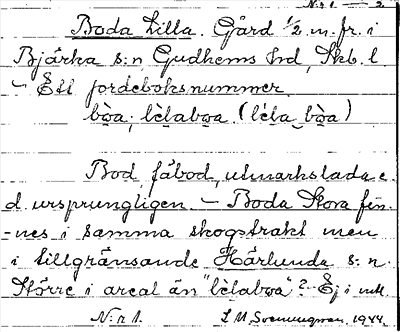 Nr 1 — 2
Boda Lilla. Gård 1/2 m. fr. i
Bjärka s:n Gudhems hd, Skb. l
- Ett jordeboksnummer.
bọa; lèlabọa. (lèla bọa)
Bod, fäbod, utmarkslada e.
d. ursprungligen. - Boda Stora fin-
-nes i samma skogstrakt men
i tillgränsande Härlunda s:n.
Större i areal än "lèlaboa"? Ej i mtl.
Nr 1. 1944.